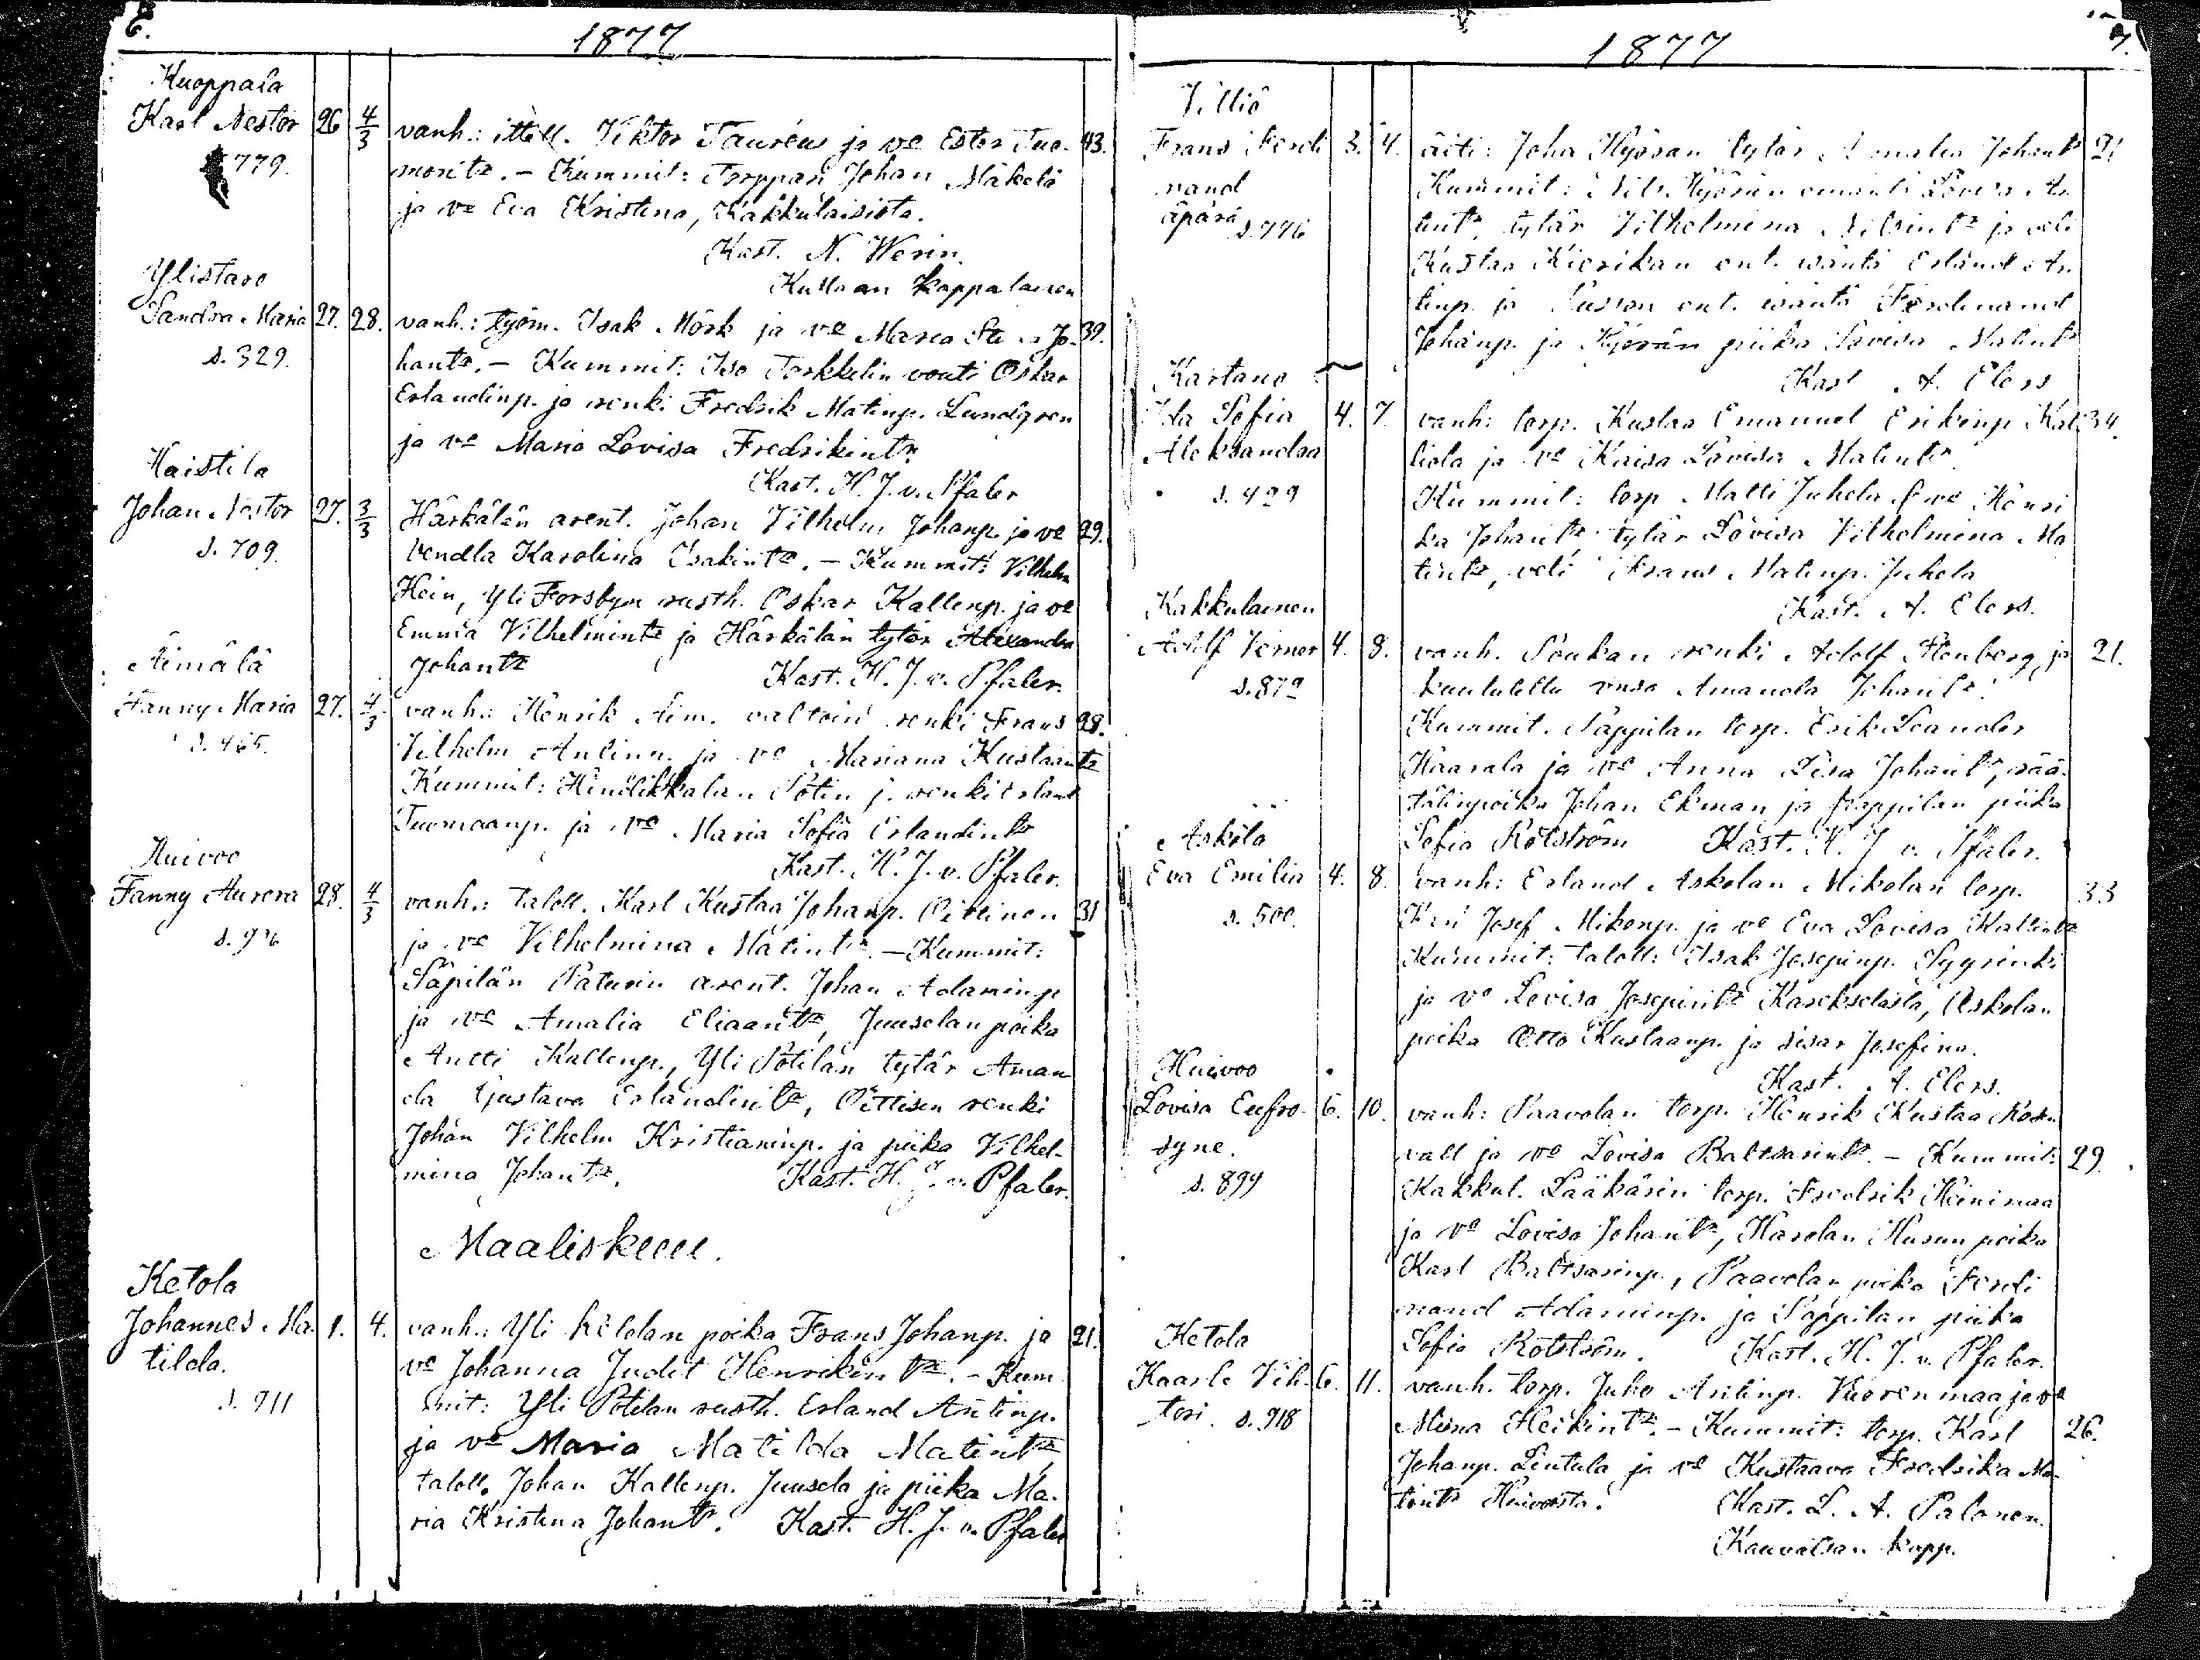 6.
1877
Kuoppala
Karl Nestor 26 4/3 vanh.: ittell. Viktor Taurén ja vo Ester Tuo- 43.
s. 779. montr. - Kummit: Torppari Johan Mäkelä
ja vo Eva Kristina, Kakkulaisista.
Kast. N. Werin.
Kustaan kappalainen
Ylistaro
Sandra Maria 27. 28. vanh.: työm. Isak Mörk ja vo Maria Jo- 39.
s. 329. hantr. - Kummit: Iso Torkkelin vouti Oskar
Erlandinp. ja renki Fredrik Matinp. Lundgren
ja vo Maria Lovisa Fredrikintr.
Kast. H. J. v. Pfaler
Haistila
Johan Nestor 27. 3/3 Härkälän arent. Johan Vilhelm Johanp. ja vo 29.
s. 709. Vendla Karolina Isakintr. - Kummit: Vilhelm
Hein, Yli Forsbyn rusth. Oskar Kallenp. ja vo
Emma Vilhelmintr ja Härkälän tytär Alexandra
Johantr Kast. H. J. v. Pfaler.
Äimälä
Fanny Maria 27. 4/3 vanh.: Henrik Äim. renki Frans 28.
s. 465. Vilhelm Antinp. ja vo Mariana Kustaantr
Kummit: Hindikkalan Potin j. renki Erland
Tuomaanp. ja vo Maria Sofia Erlandintr
Kast. H. J. v. Pfaler.
Huivoo
Fanny Aurora 28. 4/3 vanh.: taloll. Karl Kustaa Johanp. Oitinen 31
ja vo Vilhelmina Matintr. - Kummit:
Säpilän Paturin arent. Johan Adaminp
ja vo Amalia Eliaantr, Juuselan poika
Antti Kallenp., Yli Potilan tytär Aman
da Gustava Erlandintr, Oittisen renki
Johan Vilhelm Kristianinp. ja piika Vilhel-
mina Johantr. Kast. H. J. v. Pfaler.
Maaliskuu.
Ketola
Johannes Ma- 1. 4. vanh.: Yli Ketolan poika Frans Johanp. ja 21.
tilda. vo Johanna Judit Henrikintr. - Kum
s. 911 mit: Yli Potilan rusth. Erland Antinp.
ja vo Maria Matilda Matintr,
taloll. Johan Kallenp. Juusela ja piika Ma-
ria Kristina Johantr. Kast. H. J. v. Pfaler
7.
1877
Villiö
Frans Ferdi 3. 4. äiti: Joha Hyörän tytär Amalia Johantr 21
nand Kummit: Nils Hyörän emäntä Lovisa An
äpärä s. 776 tintr, tytär Vilhelmina Nilsintr ja veli
Kustaa Kierikan ent. isäntä Erland An
tinp. ja ent. isäntä Ferdinand
Johanp. ja Hyörän piika Lovisa Matintr
Kast A. Elers
Kartano
Ida Sofia 4. 7. vanh: torp. Kustaa Emanuel Erikinp Kal 34.
Aleksandra liola ja vo Kaisa Lovisa Matintr.
s. 429 Kummit: torp Matti Juhela, vo Henri
ka Johantr tytär Lovisa Vilhelmina Ma
tintr, veli Frans Matinp. Juhela
Kast. A. Elers.
Kakkulainen
Adolf Verner 4. 8. vanh. Soukan renki Adolf Stenberg, ja 21.
s. 872 kuulutettu Amanda Johantr.
Kummit. Pappilan torp. Erik Leander
Haarala ja vo Anna Lisa Johantr, rää-
tälinpoika Johan Ekman ja pappilan piika
Sofia Rotström Kast. H. J. v. Pfaler.
Askola
Eva Emilia 4. 8. vanh: Erland Askolan Mikolan torp. 33
s. 500. Josef Mikonp. ja vo Eva Lovisa Kallentr
Kummit: taloll: Isak Josepinp. Pyyrinki
ja vo Lovisa Josepintr Kareksilasta, Askolan
poika Otto Kustaanp. ja sisar Josefina.
Kast. A. Elers.
Huivoo
Lovisa Eufro- 6. 10. vanh: Paavolan torp. Henrik Kustaa Rosen
syne. vall ja vo Lovisa Baltsarintr. - Kummit: 29.
s. 899 Kakkul. Lääkärin torp. Fredrik Heinimaa
ja vo Lovisa Johantr, Harolan Husun poika
Karl Baltsarinp., Paavolan poika Ferdi
nand Adaminp. ja Pappilan piika
Sofia Rotström. Kast. H. J. v. Pfaler.
Ketola
Kaarle Vih- 6. 11. vanh. torp. Juho Antinp. Vuorenmaa ja vo
tori. s. 918 Miina Heikintr. - Kummit: torp. Karl 26.
Johanp. Lintula ja vo Kustaava Fredrika Ma-
tintr Huivoosta. Kast. L. A. Palanen.
Kauvatsan kapp.